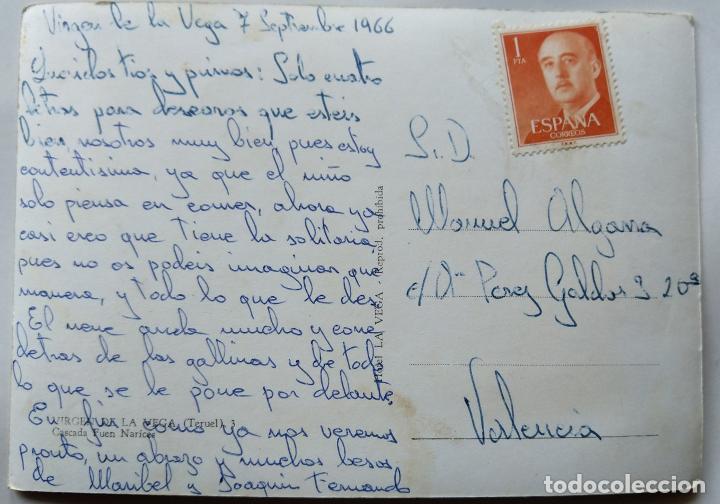 Virgen de la Vega 7 Septiembre 1966
Queridos tios y primos: Solo cuatro
letras para desearos que esteis
bien, nosotros muy bien, pues estoy
contentisima, ya que el niño
solo piensa en comer, ahora ya
casi creo que tiene la solitaria
pues no os podeis imaginar que
manera, y todo lo que le des.
El nene anda mucho y corre
detras de las gallinas y de todo
lo que se le pone por delante
En fin como ya nos veremos
pronto, un abrazo y muchos besos
de Maribel y Joaquin Fernando
VIRGEN DE LA VEGA (Teruel) 3
Cascada Fuen Narices
Hotel LA VEGA - Reprod. prohibida
1
PTA
ESPAÑA
CORREOS
S.D.
Manuel Algarra
c/ Perez Galdos 3 20ª
Valencia
todocoleccion.net